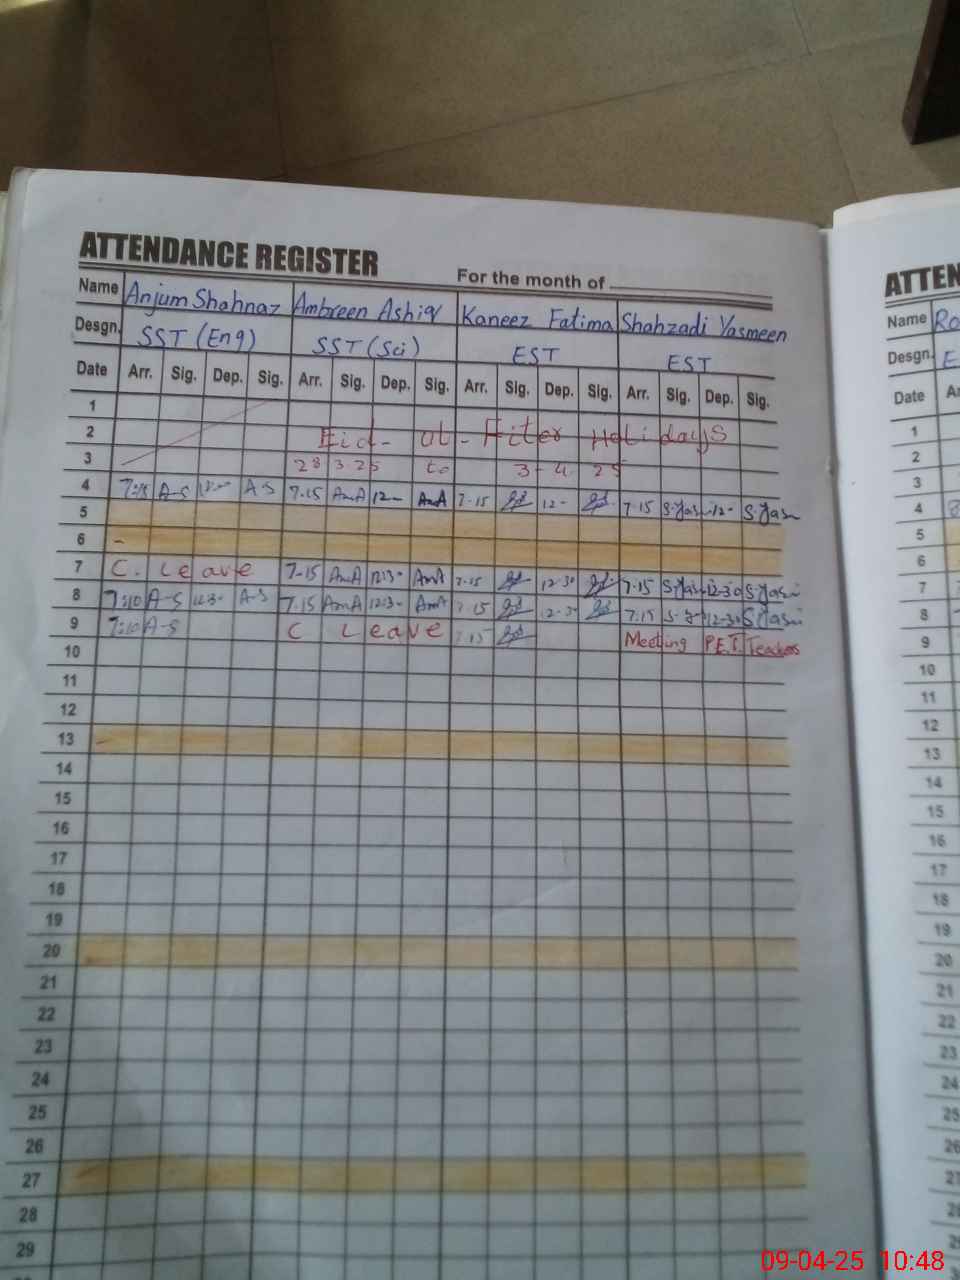 ATTENDANCE REGISTER For the month of
Name Anjum Shahnaz Ambreen Ashiq Kaneez Fatima Shahzadi Yasmeen
Desgn. SST (Eng) SST (Sci) EST EST
Date Arr. Sig. Dep. Sig. Arr. Sig. Dep. Sig. Arr. Sig. Dep. Sig. Arr. Sig. Dep. Sig.
1
2 Eid - ul - Fiter Holidays
3 28 3-25 to 3-4-25
4 7:15 A-S A-S 7.15 AmA 12- AmA 7-15 12- 7.15 S.Yas 12- S.Yas
5
6 -
7 C. Leave 7-15 AmA 1213- AmA 7.15 12-30 7.15 S.Yas 12-30 S.Yas
8 7:10 A-S 123- A-S 7.15 AmA 1213- AmA 7.15 12-3 7.15 12-30 S.Yas
9 7:10 A-S C Leave 7.15 Meeting P.E.T. Teachers
10
11
12
13
14
15
16
17
18
19
20
21
22
23
24
25
26
27
28
29
ATTEN
Name Ro
Desgn. E
Date Ar
1
2
3
4 8
5
6
7
8
9
10
11
12
13
14
15
16
17
18
19
20
21
22
23
24
25
26
27
09-04-25 10:48